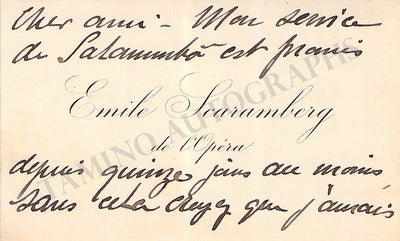 Cher ami - Mon service
de Salammbô est promis
Emile Scaramberg
de l'Opéra
depuis quinze jours au moins
sans cela croyez que jamais
TAMINO AUTOGRAPHS